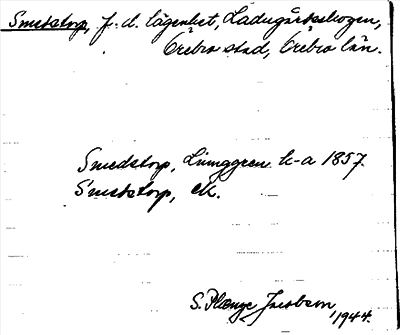 Smedstorp, f. d. lägenhet, Ladugårdsskogen,
Örebro stad, Örebro län.
Smedstorp, Ljunggren k-a 1857.
Smedstorp, ek.
S. Plænge Jacobson, 1944.